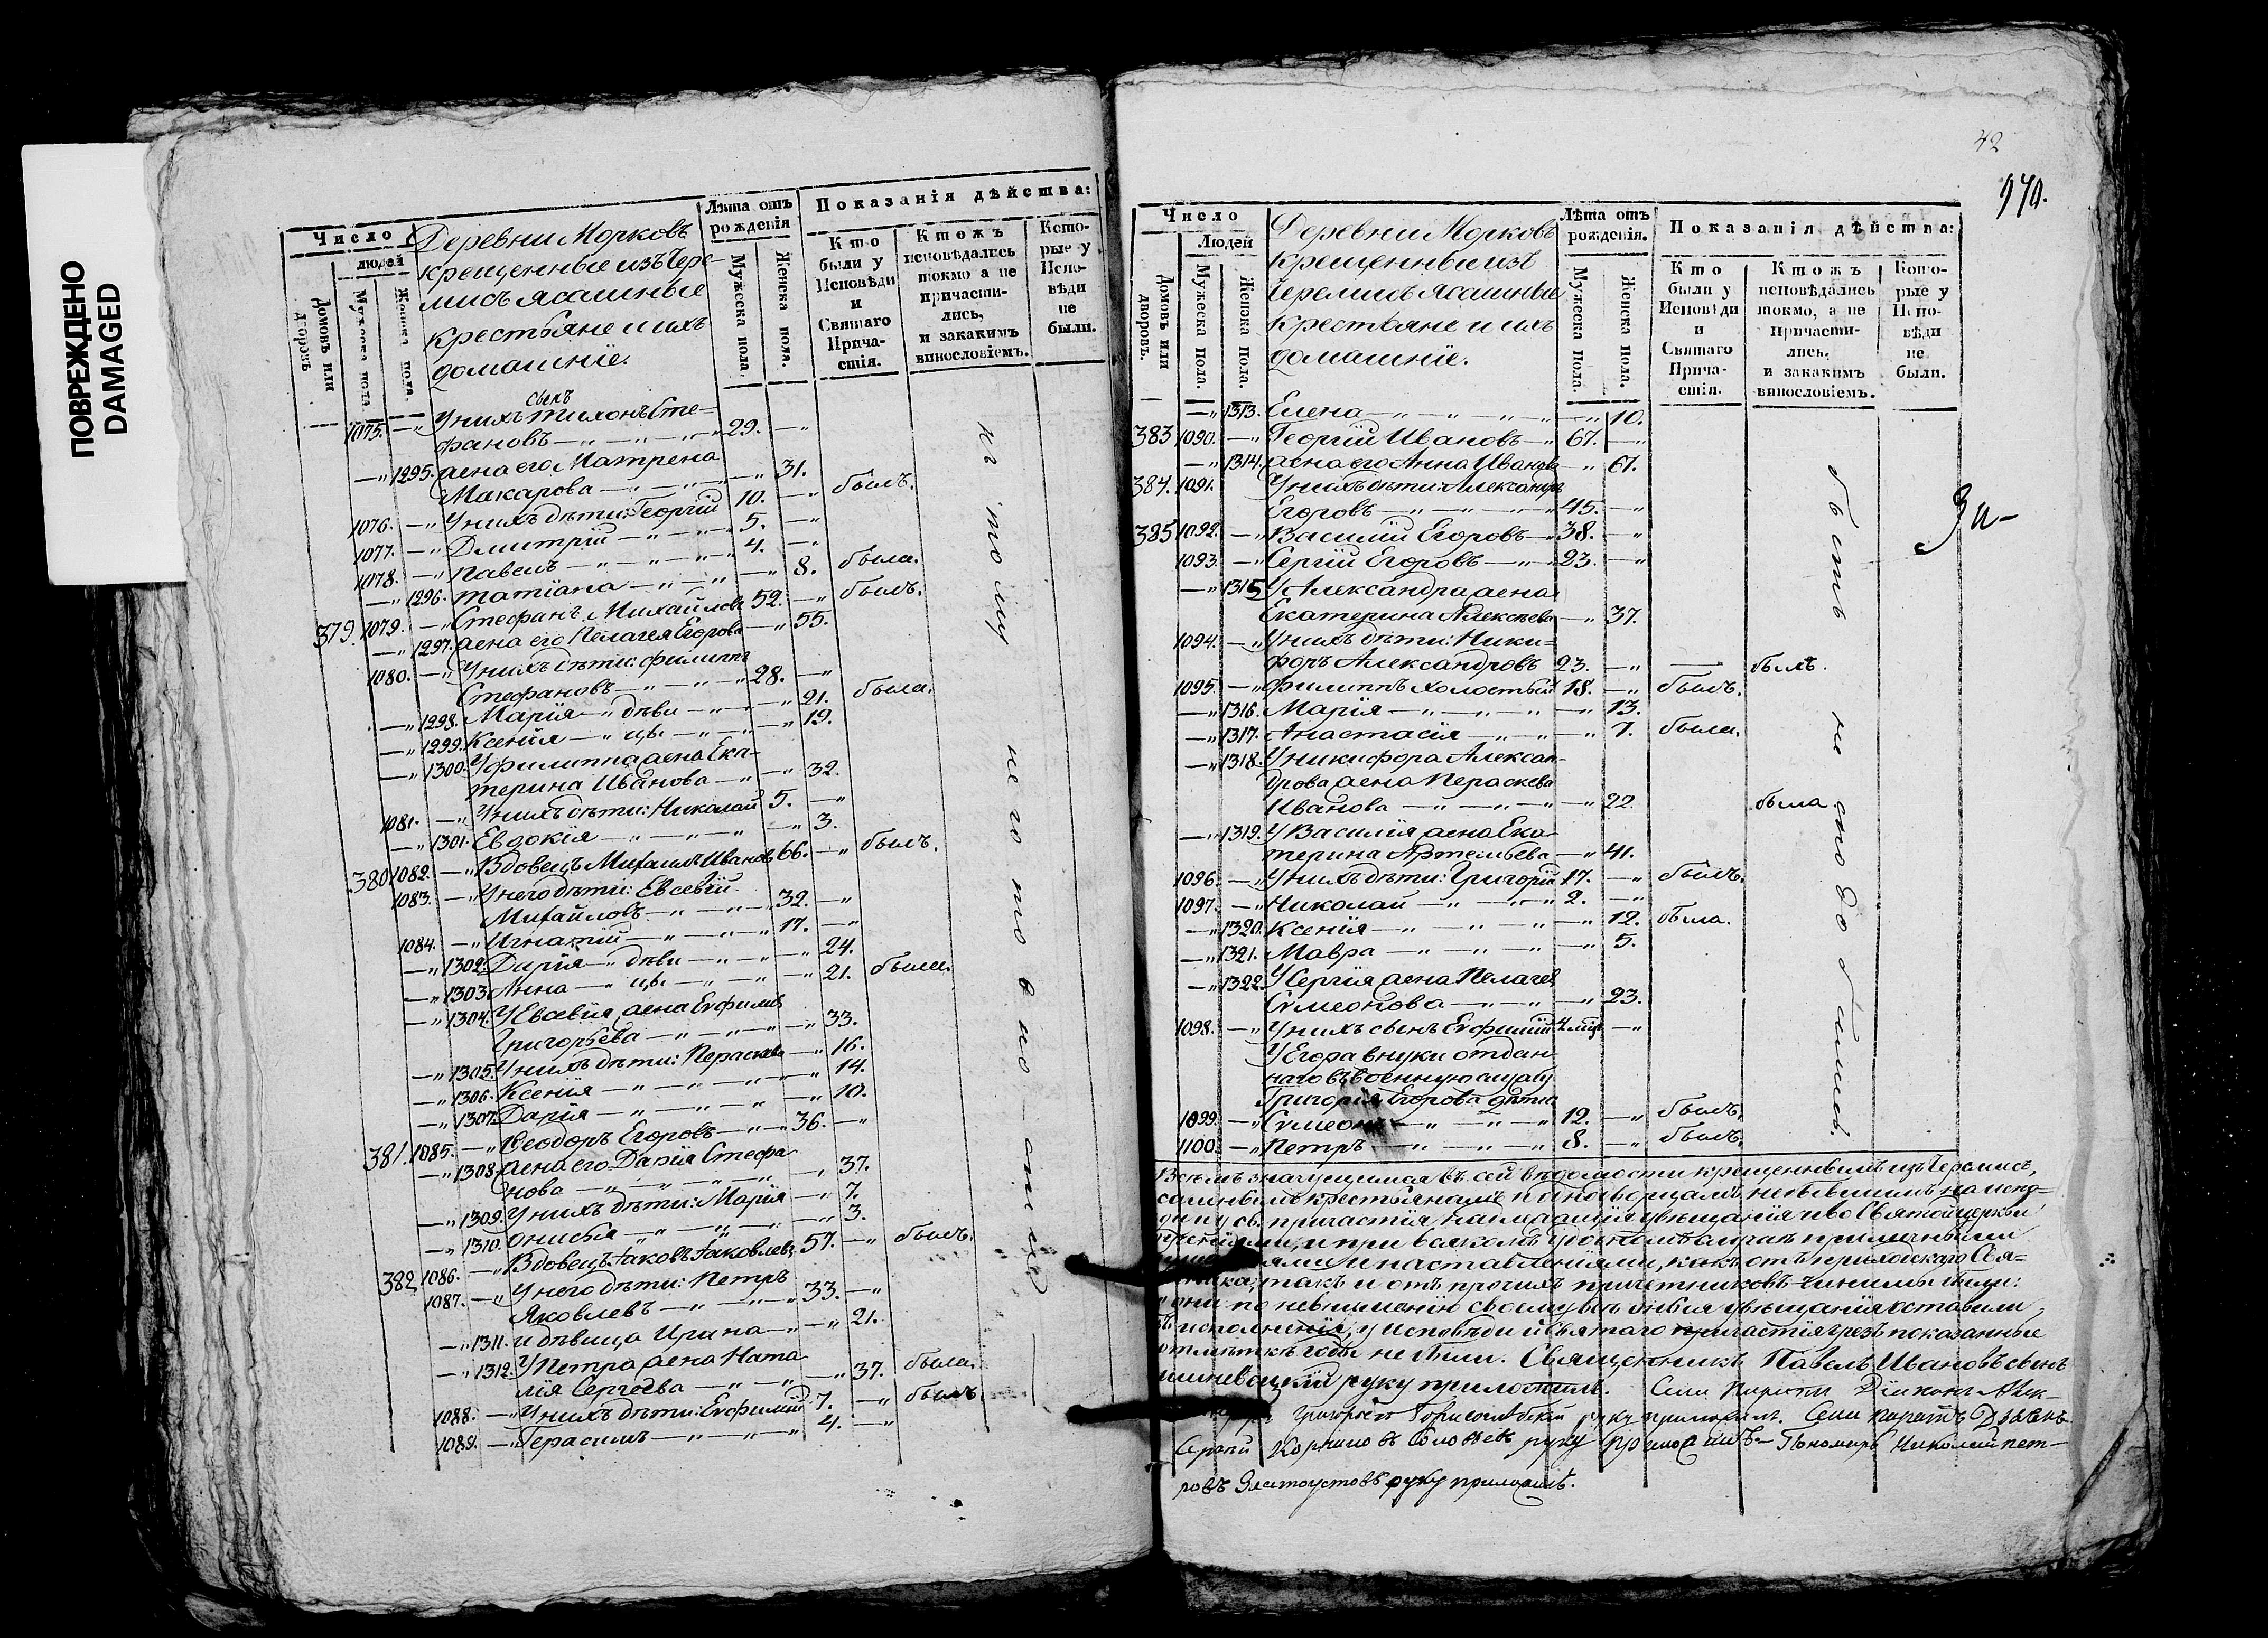 ПОВРЕЖДЕНО
DAMAGED
Число
людей
Домовъ или дворовъ
Мужеска пола
Женска пола.
Деревни Морковъ
крещенные изъ Чере-
мисъ ясашные
крестьяне и ихъ
домашнiе.
Лѣта отъ рожденiя
Мужеска пола.
Женска пола.
Показанiя дѣйства:
Кто были у Исповѣди и Святаго Прича-стiя.
Ктожъ исповѣдались токмо а не причасти-лись, и закакимъ винословiемъ.
Кото-рые у Испо-вѣди не были.
сынъ
1075. —„ У нихъ Тихонъ Сте-
фановъ —„ —„ —„ 29. —„
—„ 1295. жена его Матрена
Макарова —„ —„ —„ 31.
1076. —„ У нихъ дѣти: Георгiй 10. —„ былъ.
1077. —„ Дмитрiй —„ —„ 5. —„
1078. —„ Павелъ —„ —„ —„ 4. —„
—„ 1296. Татiана —„ —„ —„ 8. была.
379. 1079. —„ Стефанъ Михайловъ 52. —„ былъ.
—„ 1297. жена его Пелагея Егорова —„ 55.
1080. —„ У нихъ дѣти: Филиппъ
Стефановъ —„ —„ —„ 28. —„
—„ 1298. Марiя —„ дѣви —„ —„ 21. была.
—„ 1299. Ксенiя —„ цы —„ —„ 19.
—„ 1300. У Филиппа жена Ека-
терина Иванова —„ —„ 32.
1081. —„ У нихъ дѣти: Николай 5. —„
—„ 1301. Евдокiя —„ —„ —„ —„ 3.
380 1082. —„ Вдовецъ Михаилъ Ивановъ 66. —„ былъ.
1083. —„ У него дѣти: Евсевiй
Михайловъ —„ —„ 32. —„
1084. —„ Игнатiй —„ —„ —„ 17. —„
—„ 1302. Дарiя —„ дѣви —„ —„ 24.
—„ 1303. Анна —„ цы —„ —„ 21. была.
—„ 1304. У Евсевiя жена Евфимiя
Григорьева —„ —„ —„ 33.
—„ 1305. У нихъ дѣти: Параскева —„ 16.
—„ 1306. Ксенiя —„ —„ —„ —„ 14.
—„ 1307. Дарiя —„ —„ —„ —„ 10.
381. 1085. —„ Ѳеодоръ Егоровъ —„ 36. —„
—„ 1308. жена его Дарiя Стефа
нова —„ —„ —„ —„ 37.
—„ 1309. У нихъ дѣти: Марiя —„ 7.
—„ 1310. Онисья —„ —„ —„ 3.
382 1086. —„ Вдовецъ Iаковъ Iаковлевъ 57. —„ былъ.
1087. —„ У него дѣти: Петръ
Яковлевъ —„ —„ 33. —„
—„ 1311. и дѣвица Ирина —„ —„ 21.
—„ 1312. У Петра жена Ната
лiя Сергѣева —„ —„ 37. была.
1088. —„ У нихъ дѣти: Евфимiй 7. —„ былъ.
1089. —„ Герасимъ —„ —„ —„ 4. —„
къ тому
него то в по
42
970.
Число
Людей
Домовъ или дворовъ.
Мужеска пола.
Женска пола.
Деревни Морковъ
крещенныи изъ
Черемисъ ясашные
крестьяне и ихъ
домашнiе.
Лѣта отъ рожденiя.
Мужеска пола.
Женска пола.
Показанiя дѣйства:
Кто были у Исповѣди и Святаго Прича-стiя.
Ктожъ исповѣдались токмо, а не причасти-лись, и закакимъ винословiемъ.
Кото-рые у Испо-вѣди не были.
—„ 1313. Елена —„ —„ —„ —„ 10.
383 1090. —„ Георгiй Ивановъ —„ 67. —„
—„ 1314. жена его Анна Иванова —„ 67.
384. 1091. У нихъ дѣти: Александръ
Егоровъ —„ —„ —„ 45. —„
385 1092. —„ Василiй Егоровъ —„ 38. —„
1093. —„ Сергiй Егоровъ —„ —„ 23. —„
—„ 1315 У Александра жена
Екатерина Алексѣева —„ 37.
1094. —„ У нихъ дѣти: Ники=
форъ Александровъ 23. —„ — былъ.
1095. —„ Филиппъ холостый 18. —„ былъ.
—„ 1316. Марiя —„ —„ —„ —„ 13.
—„ 1317. Анастасiя —„ —„ —„ 7. была.
—„ 1318. У Никифора Алексан-
дрова жена Пераскева
Иванова —„ —„ —„ —„ 22. была
—„ 1319. У Василiя жена Ека-
терина Артемьева —„ 41.
1096. —„ У нихъ дѣти: Григорiй 17. —„ былъ.
1097. —„ Николай —„ —„ 2. —„
—„ 1320. Ксенiя —„ —„ —„ —„ 12. была.
—„ 1321. Мавра —„ —„ —„ —„ 5.
—„ 1322. У Сергiя жена Пелагея
Сѵмеонова —„ —„ —„ 23.
1098. —„ У нихъ сынъ Евфимiй 4 мѣся —„
У Егора внуки отдан
наго въ военную службу
Григорiя Егорова дѣти
1099. —„ Сѵмеонъ —„ —„ —„ 12. —„ былъ.
1100. —„ Петръ —„ —„ —„ 8. —„ былъ.
бытъ не сподобились.
За-
Всѣмъ значущимся въ сей вѣдомости крещеннымъ изъ Черемисъ,
сашнымъ крестьянамъ и однодворцамъ небывшимъ на испо-
св. причастiя, увѣщанiя Святой церкви
и при всякомъ удобномъ случаѣ приличными
и наставленiями, какъ отъ приходскаго Свя-
такъ и отъ прочихъ причетниковъ чинимы были:
они по невниманiю своему увѣщанiя оставили
исполненiя, у Исповѣди и Святаго причастiя чрезъ показанные
годы не были. Священникъ Павелъ Ивановъ сынъ
руку приложилъ. Дiаконъ
Григорьевъ руку приложилъ. Дьячекъ
Сергѣй Корниловъ Соловьевъ руку приложилъ= Пономарь Николай Пет-
ровъ Златоустовъ руку приложилъ.